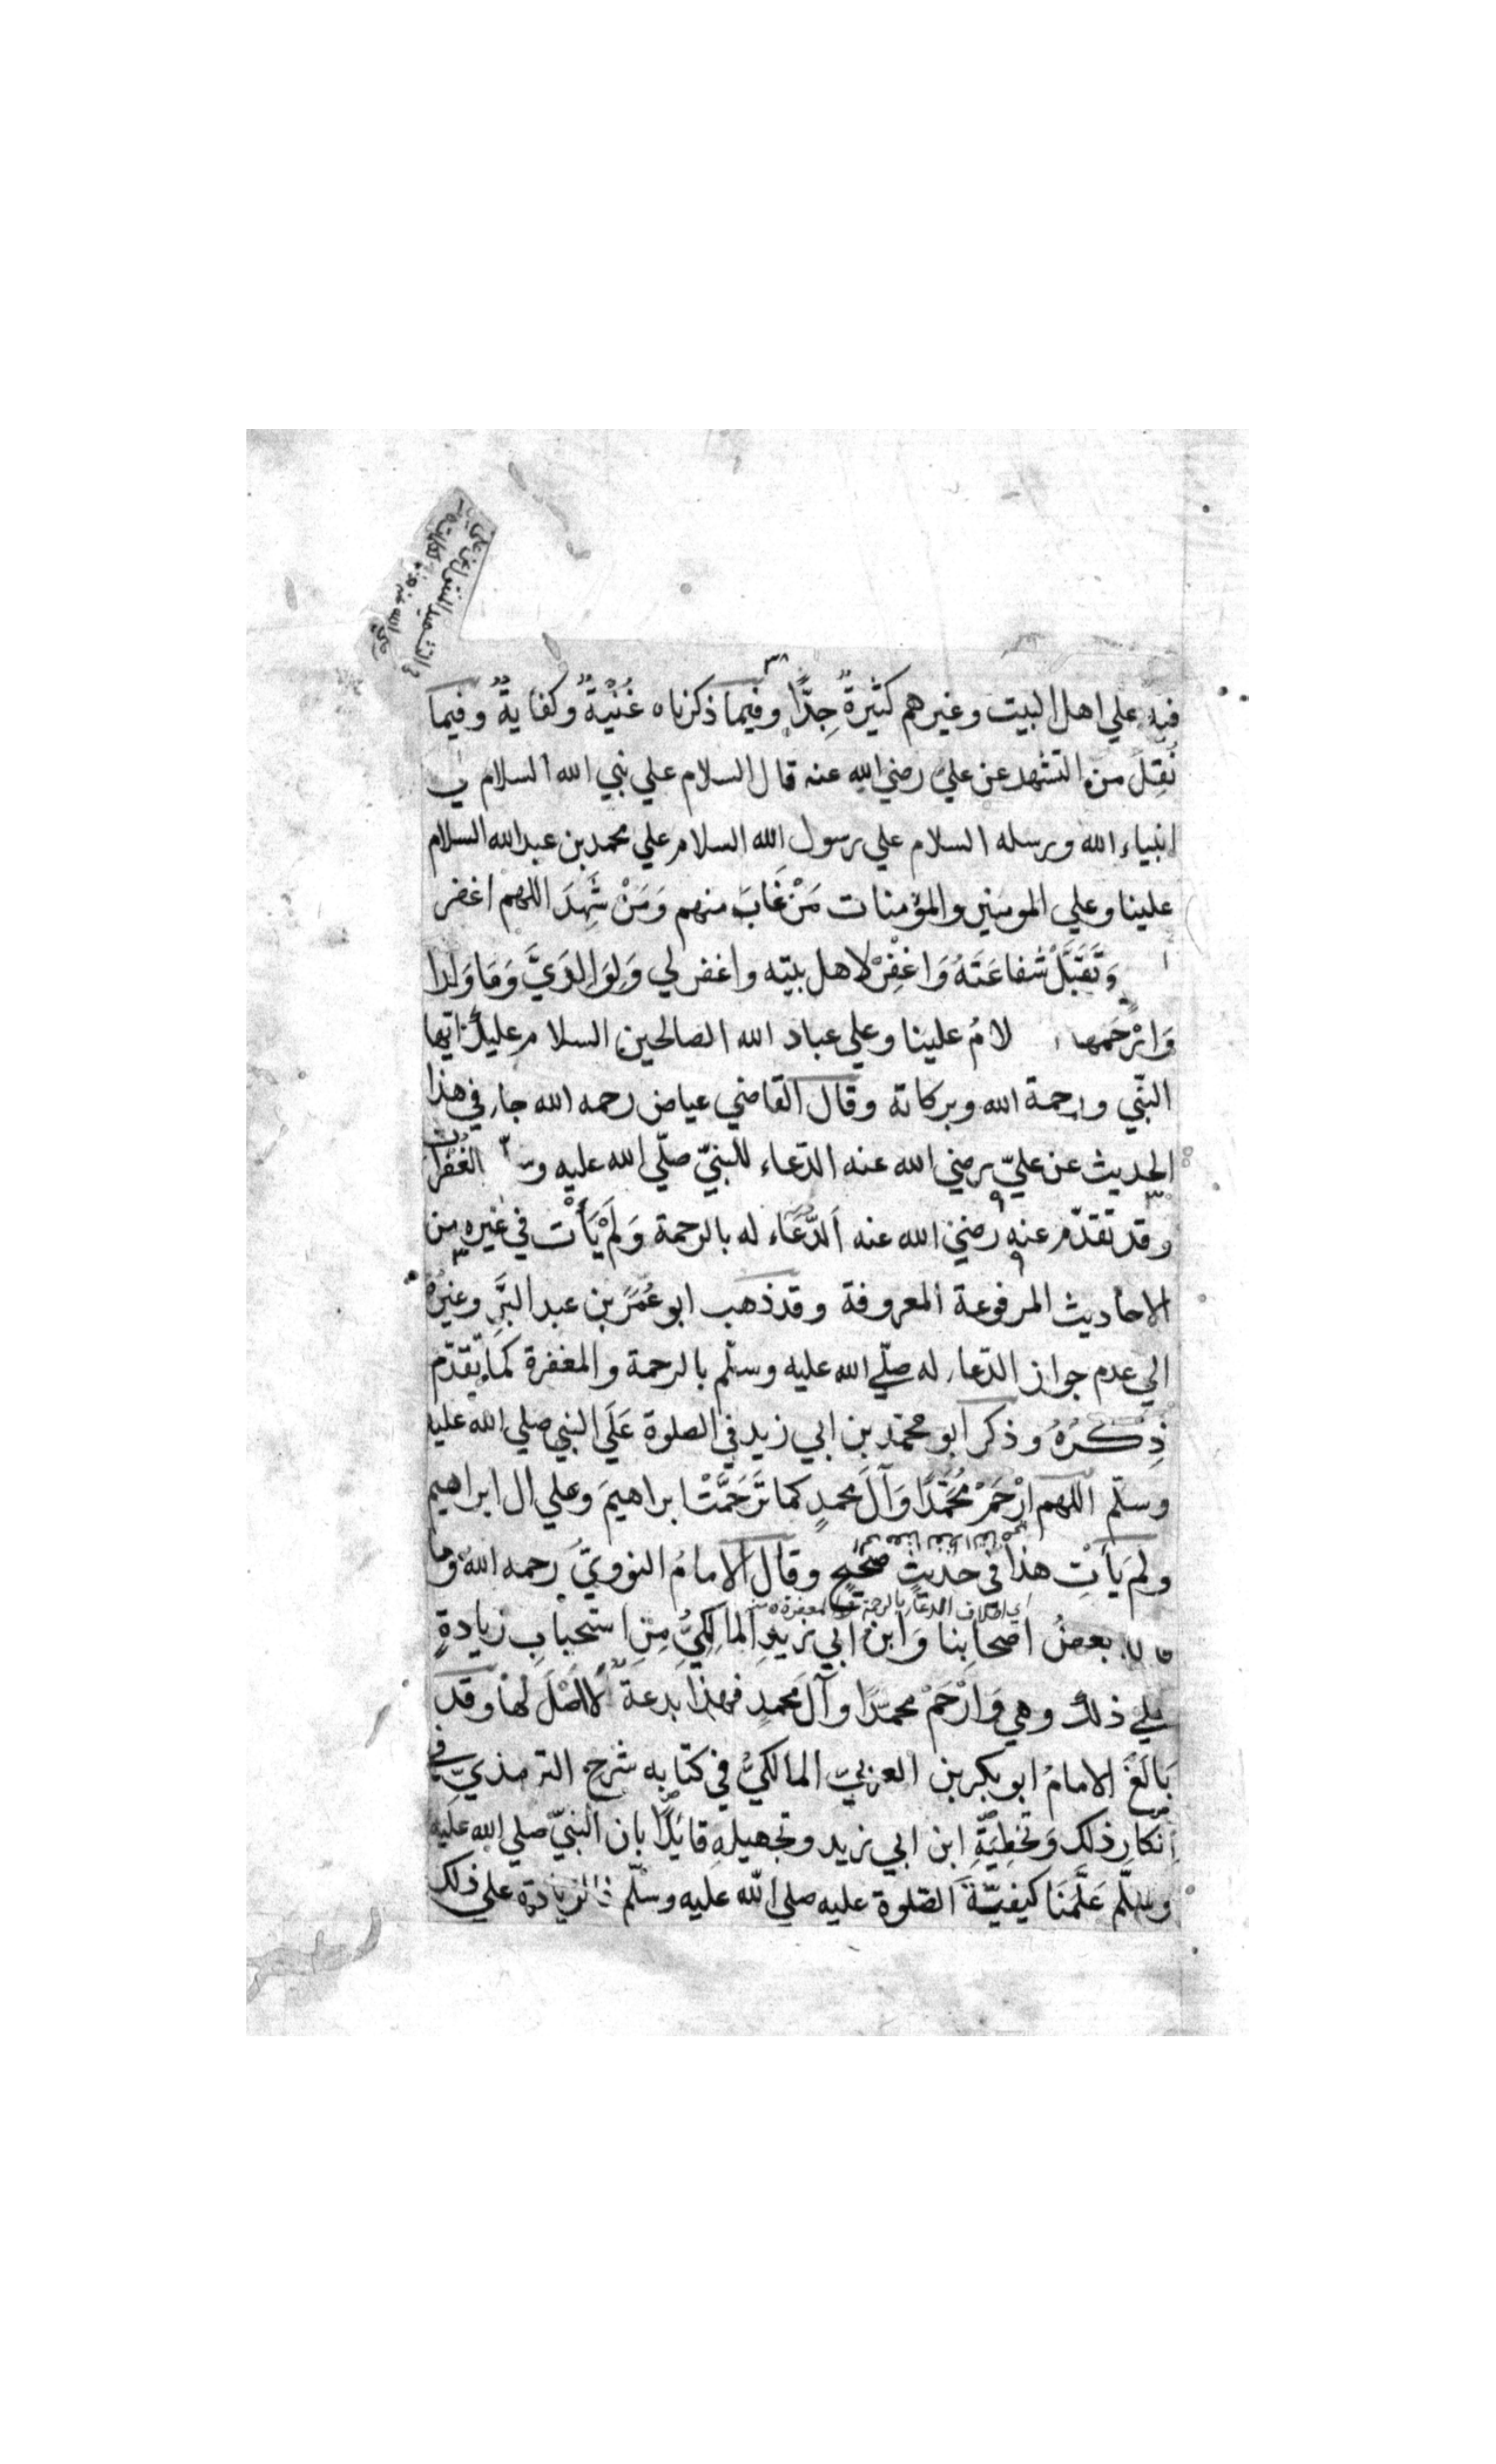 فيه علي اهل البيت وغيرهم كثيرةٌ جِدًّا وفيما ذكرناه غُنْيَةٌ وكفايةٌ وفيما
نُقِلَ من التشهد عن علي رضي الله عنه قال السلام علي نبي الله السلام
انبياء الله ورسله السلام علي رسول الله السلام علي محمد بن عبد الله السلام
علينا وعلي المومنين والمؤمنات مَنْ غَابَ منهم وَمَنْ شَهِدَ اللهم اغفر
وَتَقَبَّلْ شفاعَتَهُ وَاغْفِرْ لاهل بيته واغفر لي وَلِوَالِدَيَّ وَمَا وَلدا
وَارْحَمهما لامُ علينا وعلي عباد الله الصالحين السلام عليك ايها
النّبي ورحمة الله وبركاته وقال القاضي عياض رحمه الله جاء في هذا
الحديث عن عليّ رضي الله عنه الدّعاء للنبيّ صلّي الله عليه الغُفران
وقد تقدّم عنه رضي الله عنه اَلدُّعَاء له بالرحمة وَلَمْ يَأْت في غيره من
الاحاديث المرفوعة المعروفة وقد ذهب ابو عُمَرَ بن عبد البَرِّ وغيرُهُ
الي عدم جواز الدّعاء له صلّي الله عليه وسلّم بالرحمة والمغفرة كما تقدّم
ذِكْرُهُ وذكر ابو محمّد بن ابي زيد في الصلوة عَلَي النبي صلي الله عليه
وسلّم اللهم ارْحَمْ مُحَمَّدًا وَآلَ محمدٍ كما تَرَحَّمْتَ ابراهيمَ وعلي ال ابراهيم
ولم يَأتِ هذا في حديثٍ صَحيحٍ وقال الامامُ النوويُّ رحمه الله وما
اي اطلاق الدعاء بالرحمة
بعضُ اصحابنا وَابنُ ابي زيدٍ المالِكيُّ مِنِ استحبابِ زيادةٍ
علي ذلك وهي وَارْحَمْ محمدًا وآلَ محمدٍ فهذا بدعةٌ لااَصْلَ لها وقد
بَالَغَ الامامُ ابو بكر بن العربيّ المالكيُّ في كتابه شرح الترمذيّ في
اِنكارِ ذلك وَتخطِيَةِ ابن ابي زيد وتجهيلهِ قايلًا بان النبيّ صلي الله عليه
وسلّم عَلَّمَنَا كيفيّةَ الصّلوة عليه صلي الله عليه وسلّم فالزيادة علي ذلك